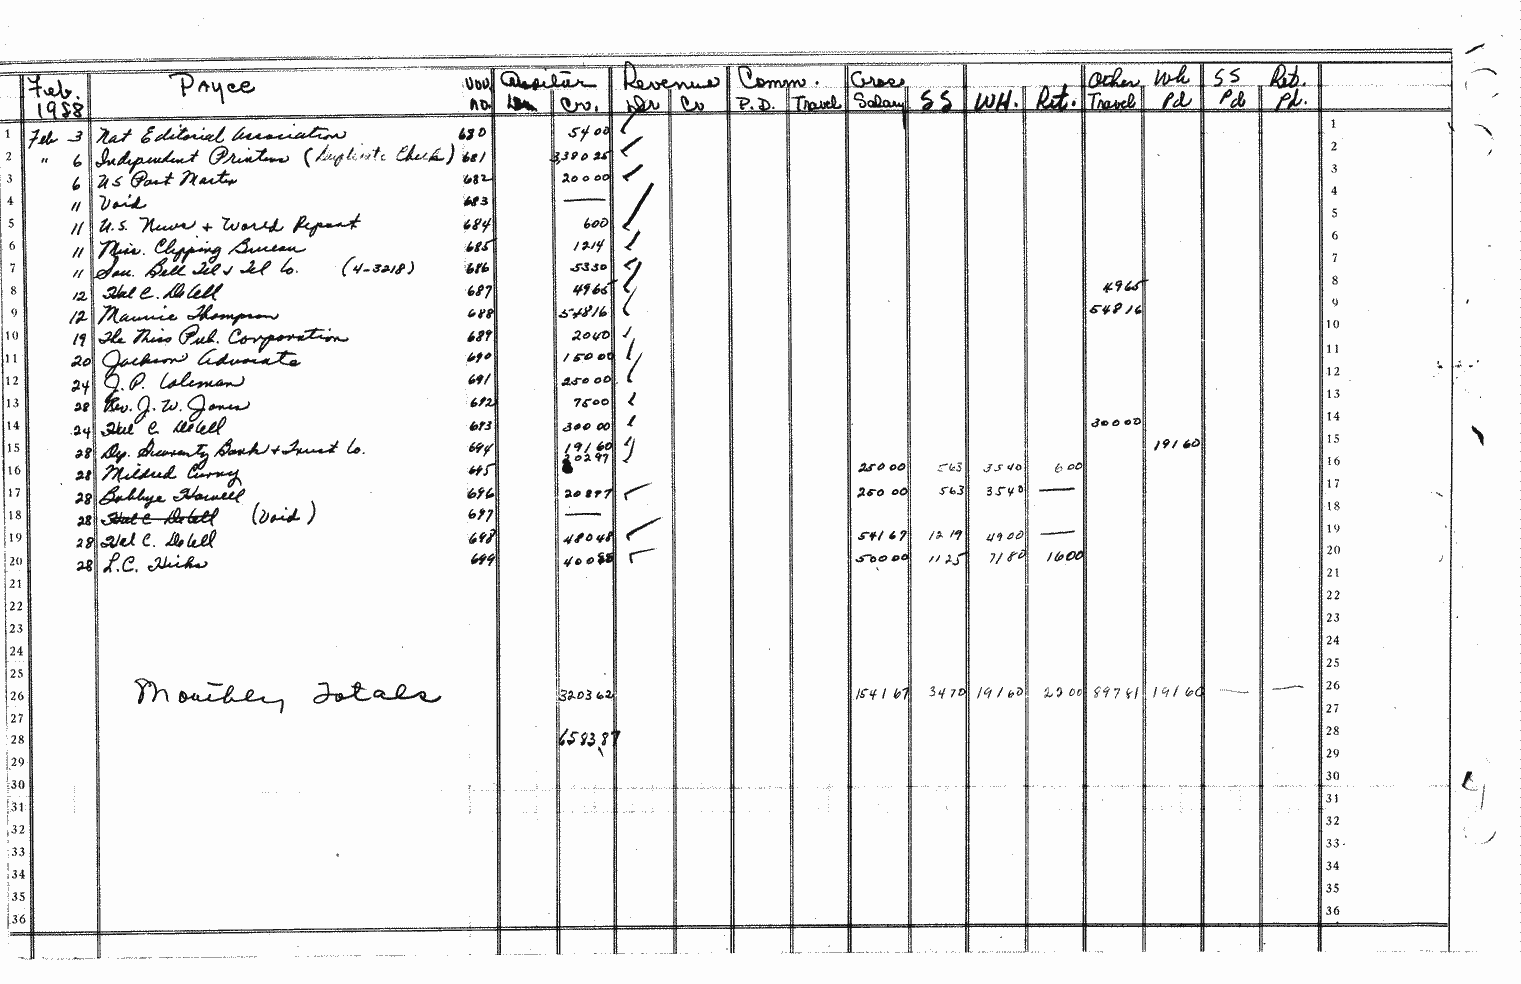 Feb. 1988 Payee Vou no. Auditor Dr. Cr. Revenue Dr Cr Comm. P.D. Travel Gross Salary SS WH. Ret. Other Travel Wh Pd SS Pd Ret. Pd.
1 Feb 3 Nat Editorial Association 680 5400 1
2 " 6 Independent Printers (Duplicate Check) 681 338025 2
3 6 US Post Master 682 20000 3
4 11 Void 683 — 4
5 11 U.S. News + World Report 684 600 5
6 11 Miss. Clipping Bureau 685 1214 6
7 11 Sou. Bell Tel & Tel Co. (4-3218) 686 5350 7
8 12 Hal C. DeCell 687 4965 4965 8
9 12 Maurice Thompson 688 54816 54816 9
10 19 The Miss Pub. Corporation 689 2040 10
11 20 Jackson Advocate 690 15000 11
12 24 J. P. Coleman 691 25000 12
13 28 Rev. J. W. Jones 692 7500 13
14 24 Hal C. DeCell 693 30000 30000 14
15 28 Dep. Guaranty Bank & Trust Co. 694 19160 19160 15
16 28 Mildred Curry 695 20297 25000 563 3540 600 16
17 28 Bobbye Howell 696 20897 25000 563 3540 — 17
18 28 Hal C. DeCell (Void) 697 — 18
19 28 Hal C. DeCell 698 48048 54167 1219 4900 — 19
20 28 L.C. Hicks 699 40085 50000 1125 7180 1600 20
21 21
22 22
23 23
24 24
25 25
26 Monthly Totals 320362 154167 3470 19160 2200 89781 19160 — — 26
27 27
28 658387 28
29 29
30 30
31 31
32 32
33 33
34 34
35 35
36 36